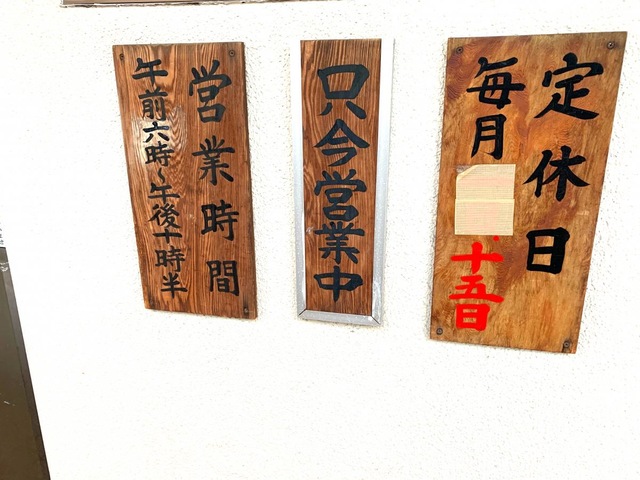 定休日
毎月
十五日
只今営業中
営業時間
午前六時~午後十時半